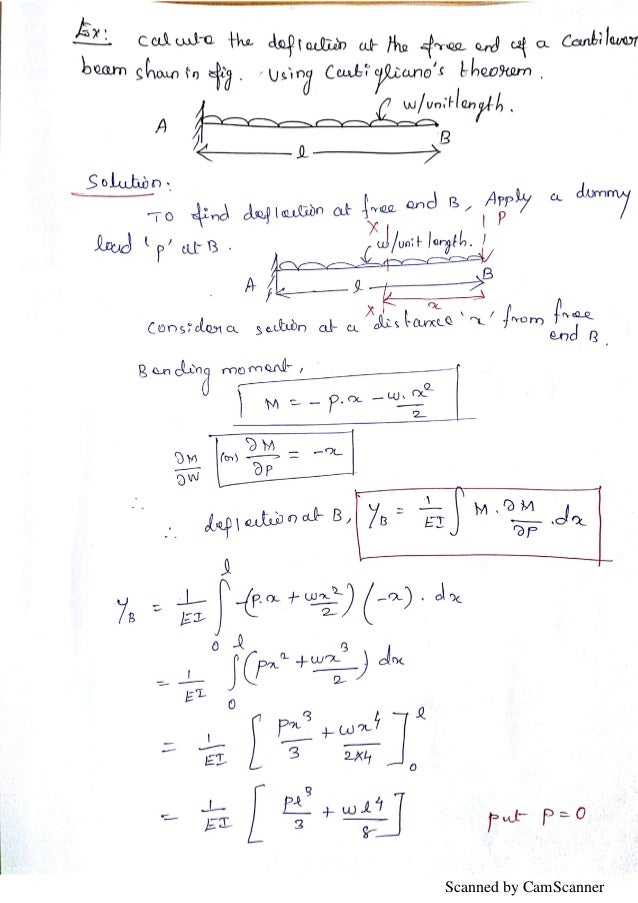 Ex: Calculate the deflection at the free end of a Cantilever
beam shown in fig. Using Castigliano's theorem.
w/unit length.
A
B
l
Solution:
To find deflection at free end B, Apply a dummy
load 'p' at B.
X
P
w/unit length.
A
B
l
X
x
Consider a section at a distance 'x' from free
end B.
Bending moment,
M = - p.x - w.x²/2
∂M/∂W (or) ∂M/∂P = -x
∴
∴ deflection at B, y_B = 1/EI ∫ M . ∂M/∂P . dx
y_B = 1/EI ∫₀ˡ -(p.x + wx²/2) (-x) . dx
= 1/EI ∫₀ˡ (px² + wx³/2) dx
= 1/EI [ px³/3 + wx⁴/2×4 ]₀ˡ
= 1/EI [ pl³/3 + wl⁴/8 ] put p=0
Scanned by CamScanner